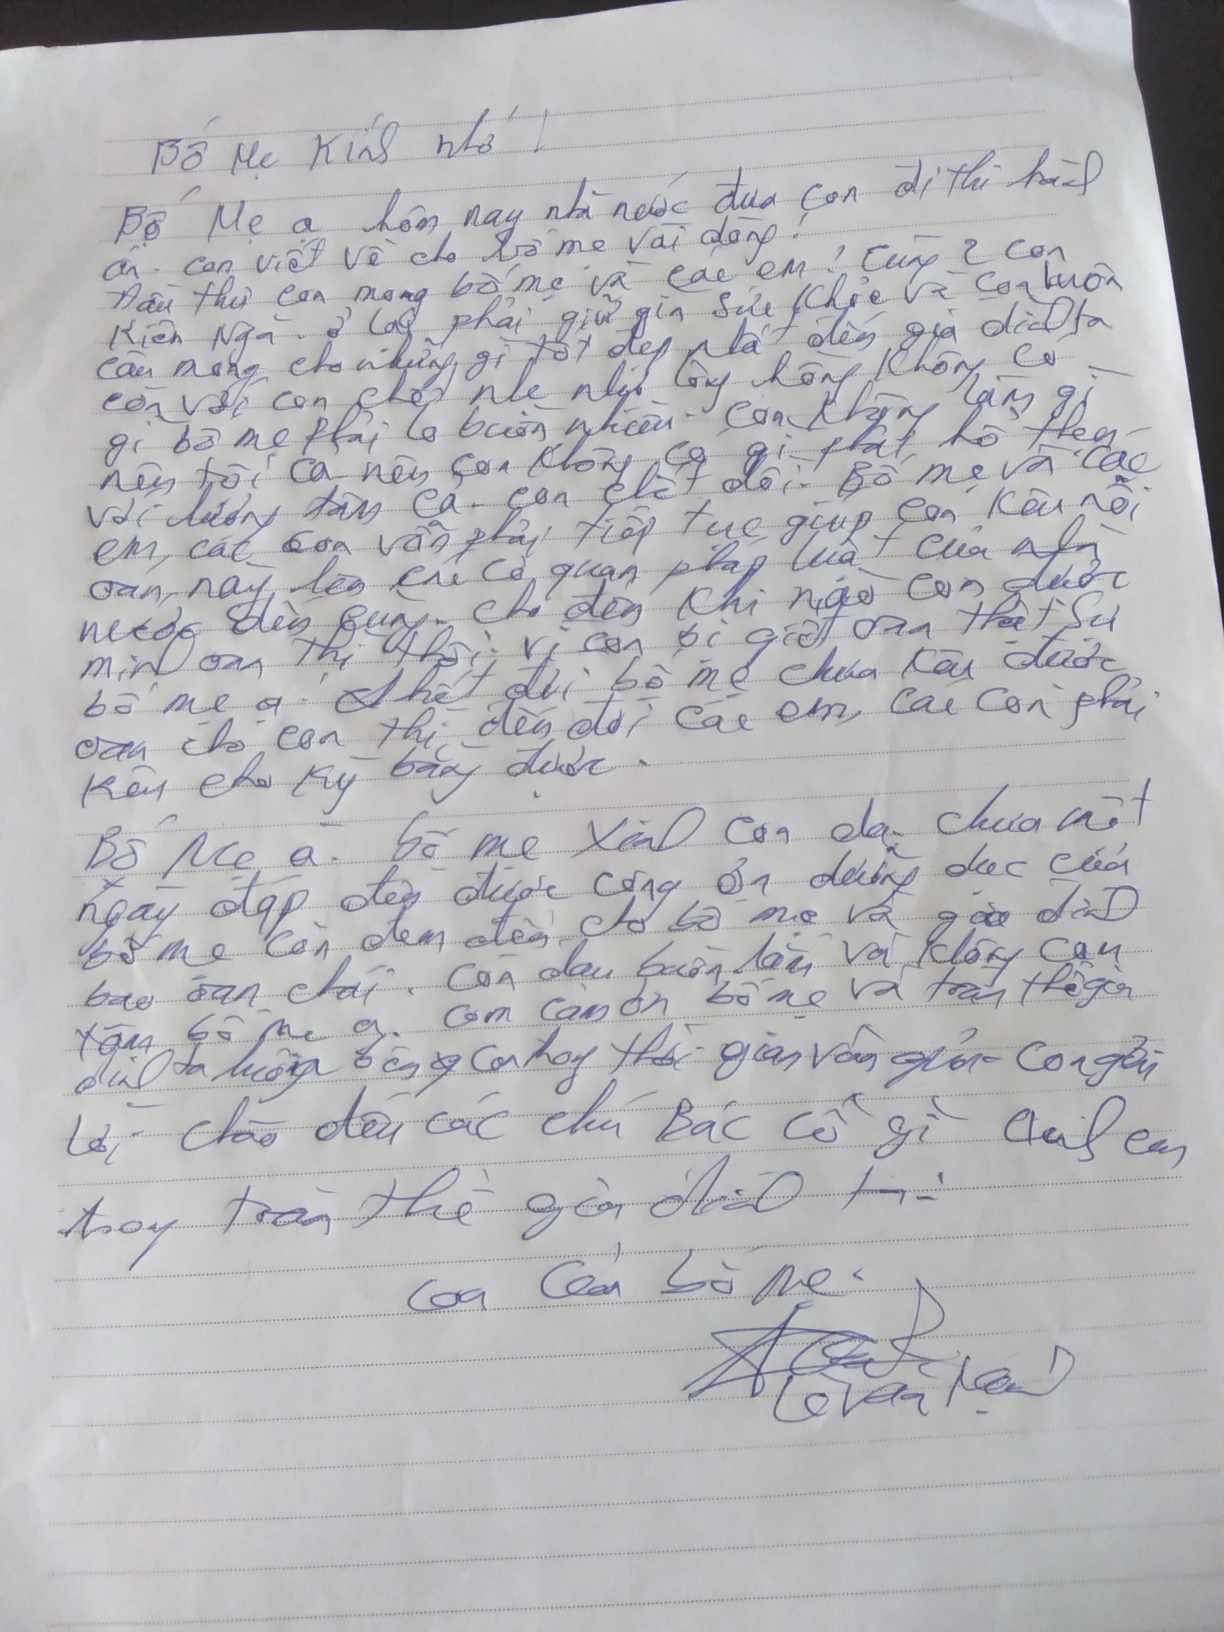 Bố Mẹ Kính nhớ!
Bố Mẹ ạ hôm nay nhà nước đưa con đi thi hành
án. con viết về cho bố mẹ vài dòng!
Đầu thư con mong bố mẹ và các em! cùng 2 con
Kiên Nga. ở lại phải giữ gìn sức khỏe và con luôn
cầu mong cho những gì tốt đẹp nhất đến gia đình ta
còn với con chết nhẹ như lông hồng không có
gì bố mẹ phải lo buồn nhiều. con không làm gì
nên tội cả nên con không có gì phải hổ thẹn
với lương tâm cả. con chết đi. Bố mẹ và các
em, các con vẫn phải tiếp tục giúp con kêu nỗi
oan này lên các cơ quan pháp luật của nhà
nước đến cùng. cho đến khi nào con được
minh oan thì thôi. vì con bị giết oan thật sự
bố mẹ ạ. hết đời bố mẹ chưa kêu được
oan cho con thì đến đời các em, các con phải
kêu cho kỳ bằng được.
Bố Mẹ ạ. bố mẹ sinh con ra. chưa một
ngày đáp đền được công ơn dưỡng dục của
bố mẹ còn đem đến cho bố mẹ và gia đình
bao oan trái. con đau buồn lắm và không cam
tâm bố mẹ ạ. con cảm ơn bố mẹ và toàn thể gia
đình ta luôn bên con thời gian vừa qua. con gửi
lời chào đến các chú Bác cô gì anh em
toàn thể gia đình
con của bố mẹ.
Lê Văn Mạnh